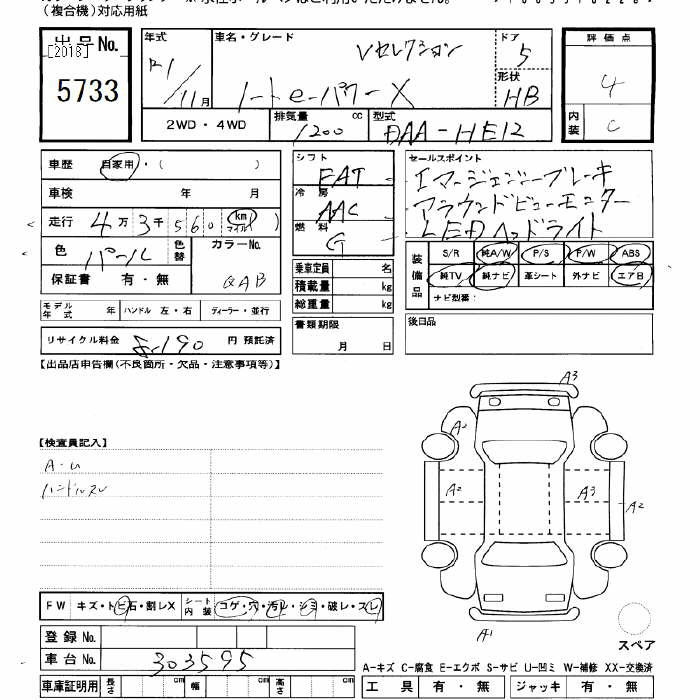 (複合機)対応用紙
出品No.
[2018]
5733
年式
R1/11月
車名・グレード
Vセレクション
ノートe-パワーX
ドア
5
形状
HB
2WD・4WD
排気量
1200
cc
型式
DAA-HE12
評価点
4
内装
C
車歴
自家用・( )
車検 年 月
走行
4万3千560
km
マイル
色
パール
色替
カラーNo.
QAB
保証書 有・無
モデル年式
年
ハンドル 左・右
ディーラー・並行
リサイクル料金
円 預託済
シフト
FAT
冷房
AAC
燃料
G
乗車定員 名
積載量 kg
総重量 kg
書類期限
月 日
セールスポイント
エマージェンシーブレーキ
アラウンドビューモニター
LEDヘッドライト
装備品
S/R 純A/W P/S P/W ABS
純TV 純ナビ 革シート 外ナビ エアB
ナビ型番:
後日品
【出品店申告欄(不良箇所・欠品・注意事項等)】
【検査員記入】
A・U
ハンドルスレ
A3
A2
A2
A3
A2
A1
スペア
FW
キズ・トビ石・割レX
シート内装
コゲ・穴・汚レ・シミ・破レ・スレ
登録No.
車台No.
303595
車庫証明用
長さ cm
幅 cm
高さ cm
A-キズ C-腐食 E-エクボ S-サビ U-凹ミ W-補修 XX-交換済
工具 有・無
ジャッキ 有・無